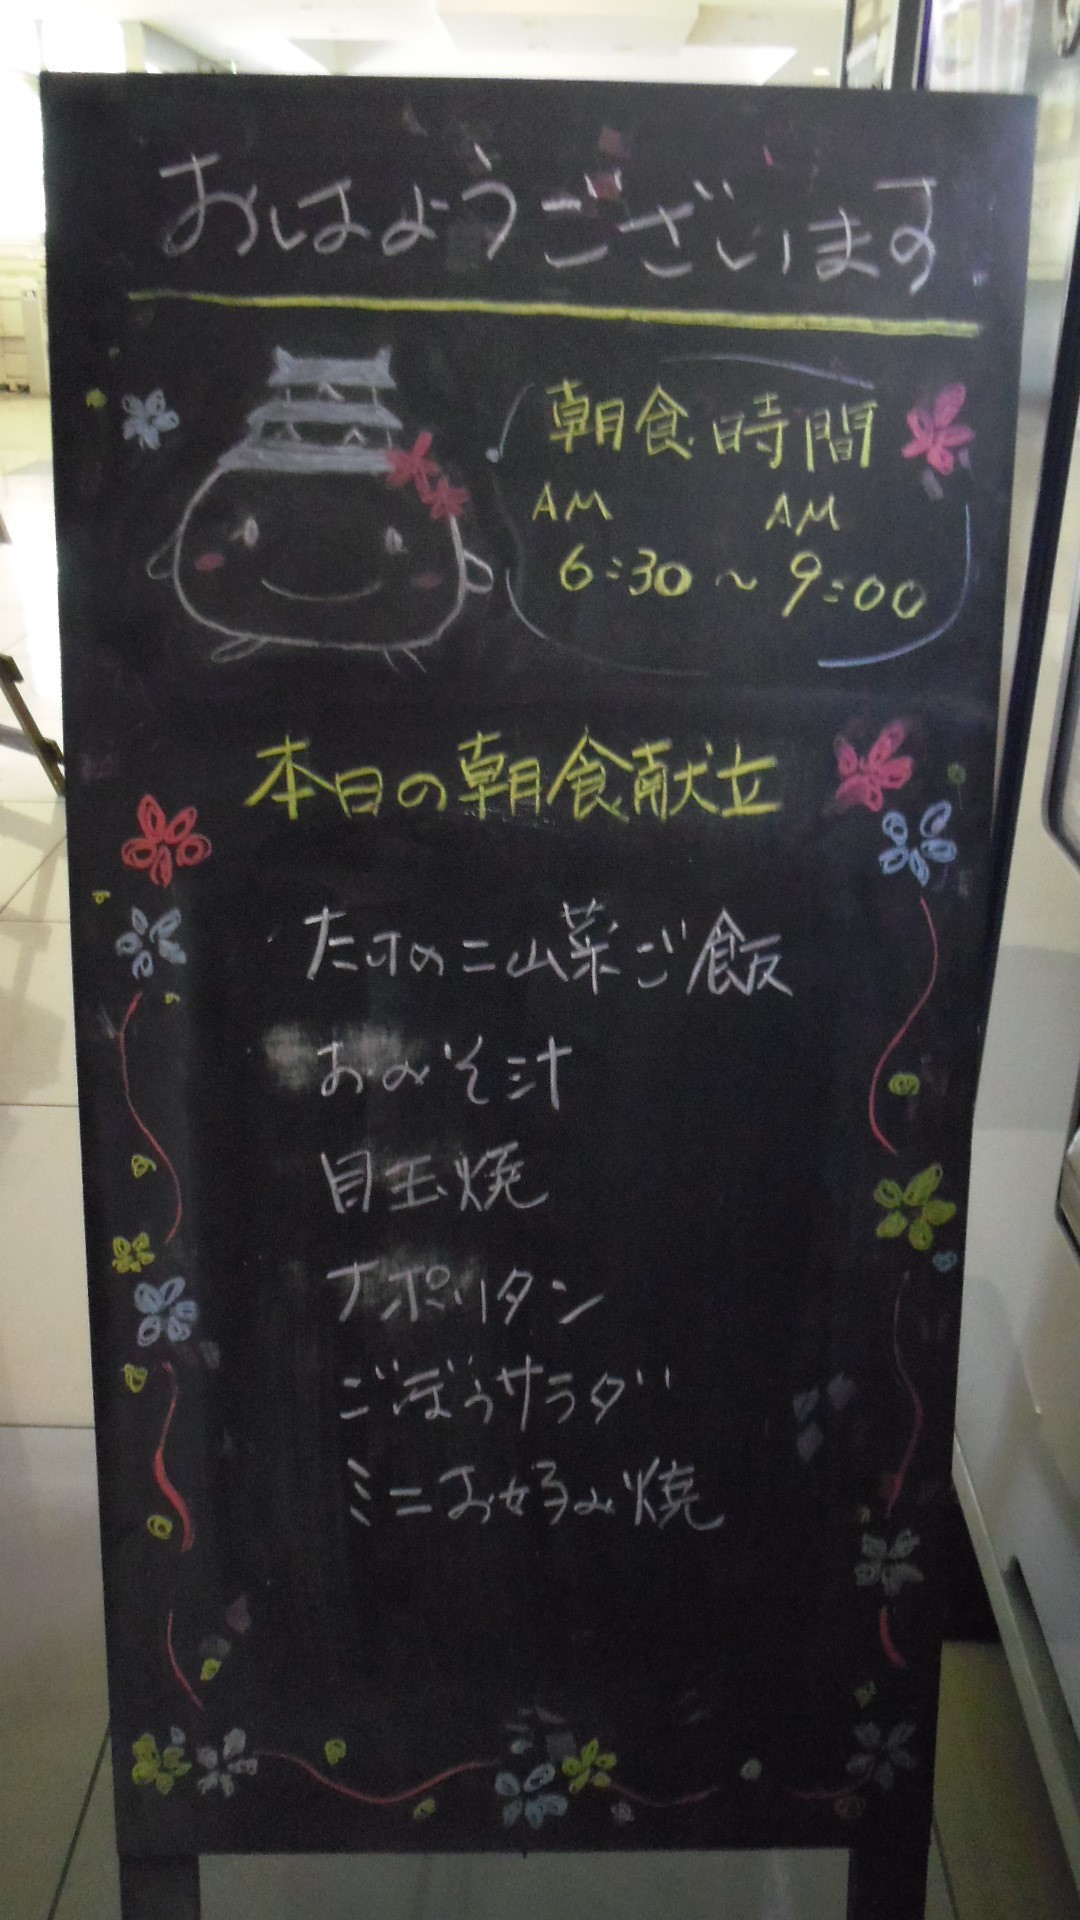 おはようございます
朝食時間
AM AM
6:30～9:00
本日の朝食献立
たけのこ山菜ご飯
おみそ汁
目玉焼
ナポリタン
ごぼうサラダ
ミニお好み焼